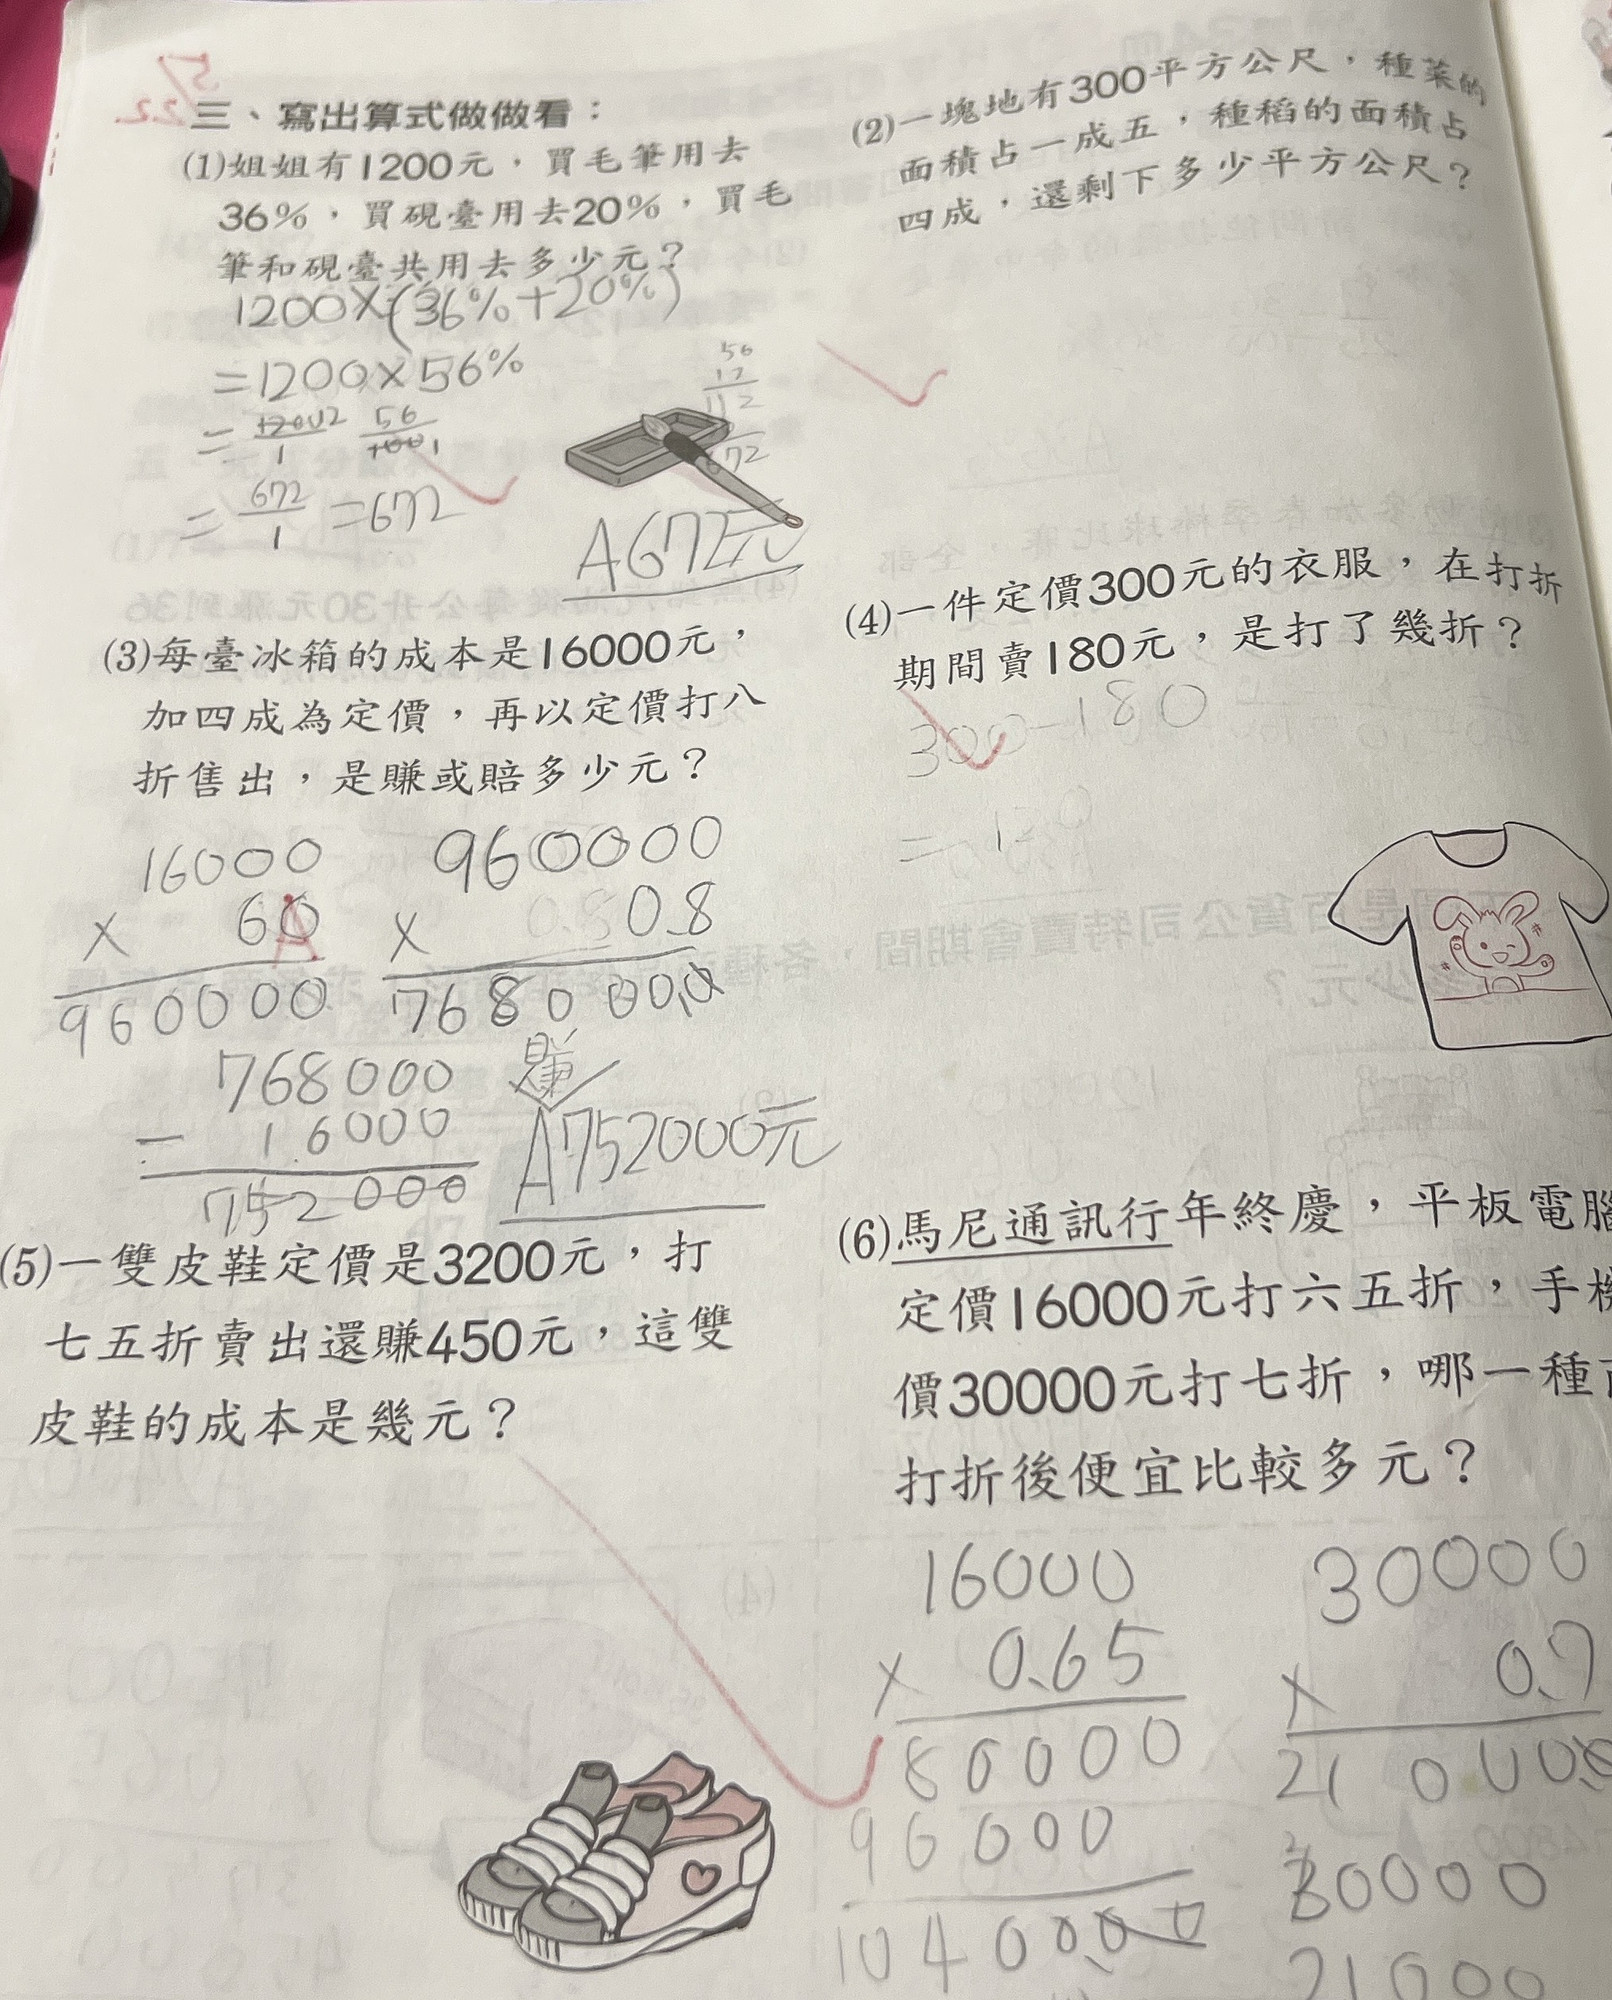 5/22
三、寫出算式做做看：
(1)姐姐有1200元，買毛筆用去
36%，買硯臺用去20%，買毛
筆和硯臺共用去多少元？
1200×(36%+20%)
=1200×56%
= 1200 12 / 1 56 / 100 1
= 672 / 1 =672
56
12
112
672
A672元
(2)一塊地有300平方公尺，種菜的
面積占一成五，種稻的面積占
四成，還剩下多少平方公尺？
(3)每臺冰箱的成本是16000元，
加四成為定價，再以定價打八
折售出，是賺或賠多少元？
16000
× 60
960000
960000
× 0.8
768000.0
768000
- 16000
752000
賺
A752000元
(4)一件定價300元的衣服，在打折
期間賣180元，是打了幾折？
300-180
=120
(5)一雙皮鞋定價是3200元，打
七五折賣出還賺450元，這雙
皮鞋的成本是幾元？
(6)馬尼通訊行年終慶，平板電腦
定價16000元打六五折，手機
價30000元打七折，哪一種
打折後便宜比較多元？
16000
× 0.65
80000
96000
10400.00
30000
× 0.7
21000.0
30000
21000